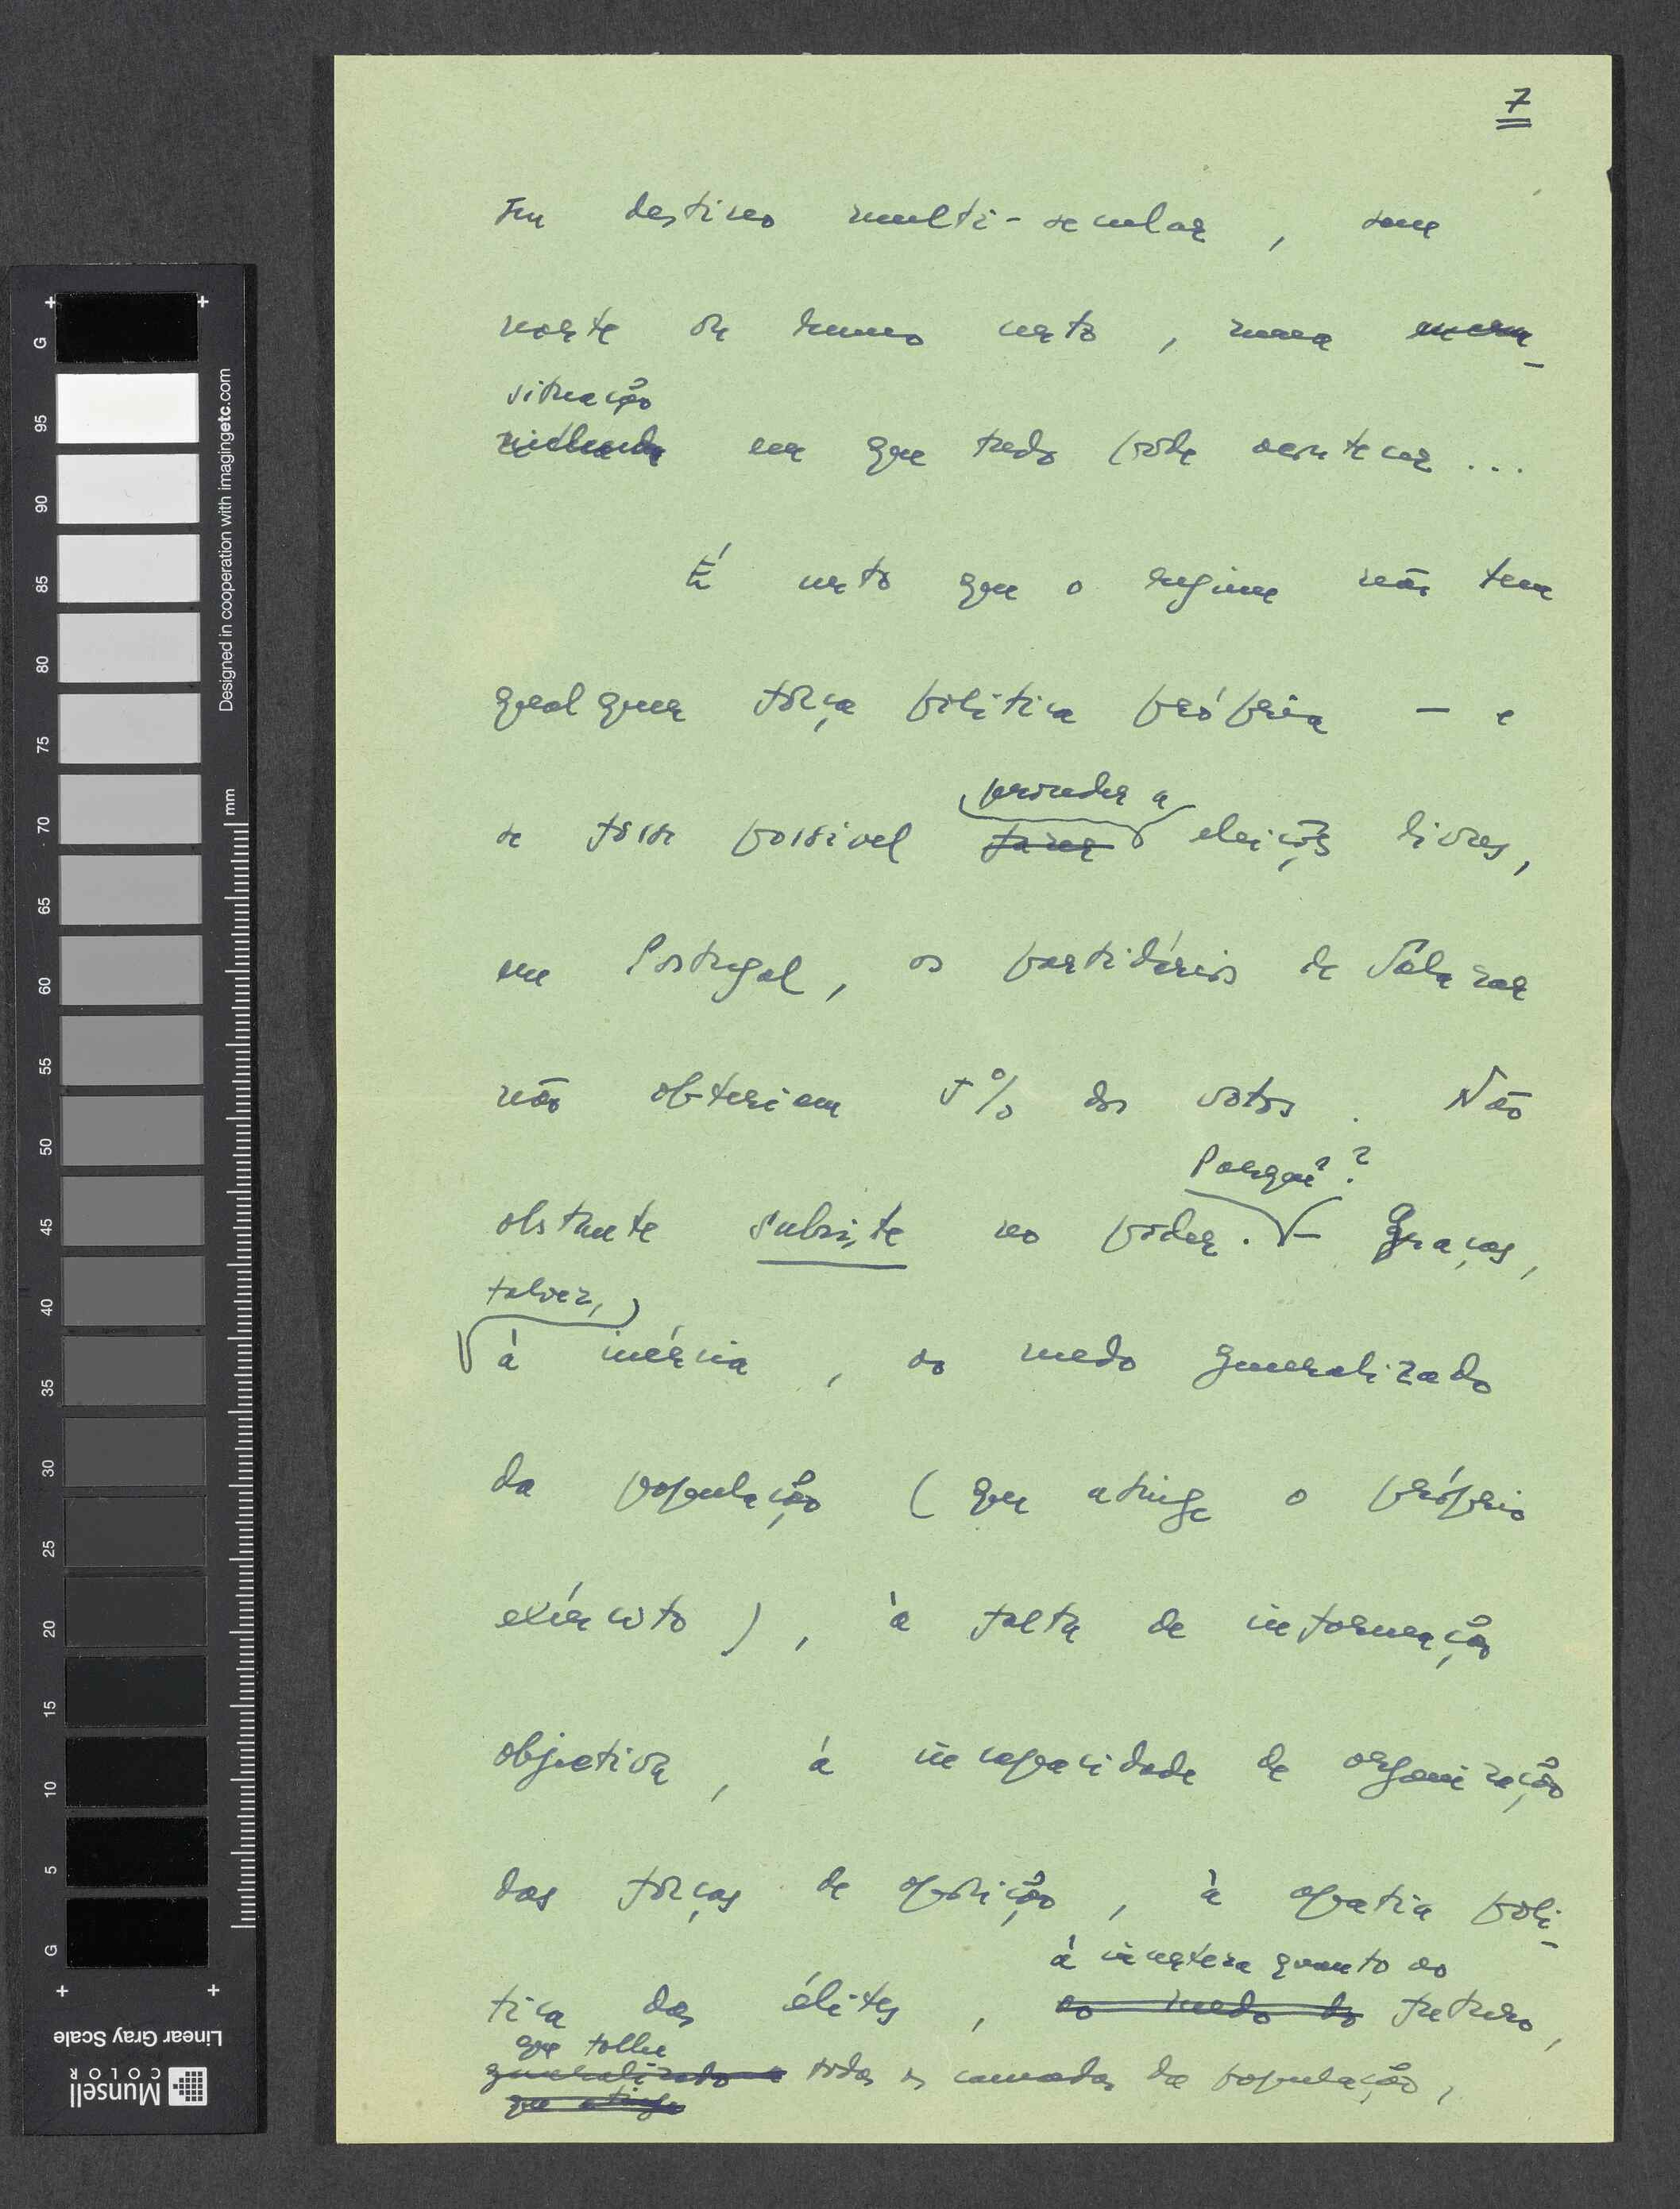 7
seu destino multi-secular, sem
norte ou rumo certo, numa
situação
em que tudo pode acontecer...
É certo que o regime não tem
qualquer fôrça política própria — e
proceder a
se fosse possível fazer eleições livres,
em Portugal, os partidários de Salazar
não obteriam 5% dos votos. Não
Porquê?
obstante subsiste no poder. — Graças,
talvez,
à inércia, ao medo generalizado
da população (que atinge o próprio
exército), à falta de informação
objetiva, à incapacidade de organização
das fôrças de oposição, à apatia polí-
à incerteza quanto ao
tica das élites, ao medo do futuro,
que tolhe
generalizado a todas as camadas da população,
que atinge
G 95 90 85 80 75 70 65 60 55 50 45 40 35 30 25 20 15 10 5 G
Designed in cooperation with imagingetc.com
mm
Linear Gray Scale
Munsell
COLOR